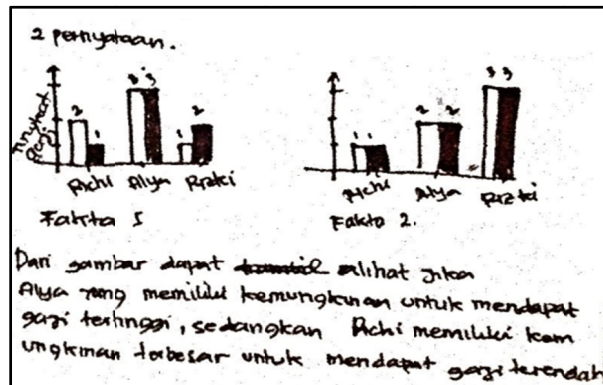 2 pernyataan.
Tingkat
Gaji
2 1 3 3 1 2
1 1 2 2 3 3
Richi Alya Rizki
Richi Alya Rizki
Fakta 1
Fakta 2.
Dari gambar dapat dilihat jika
Alya yang memiliki kemungkinan untuk mendapat
gaji tertinggi, sedangkan Richi memiliki kem
ungkinan terbesar untuk mendapat gaji terendah